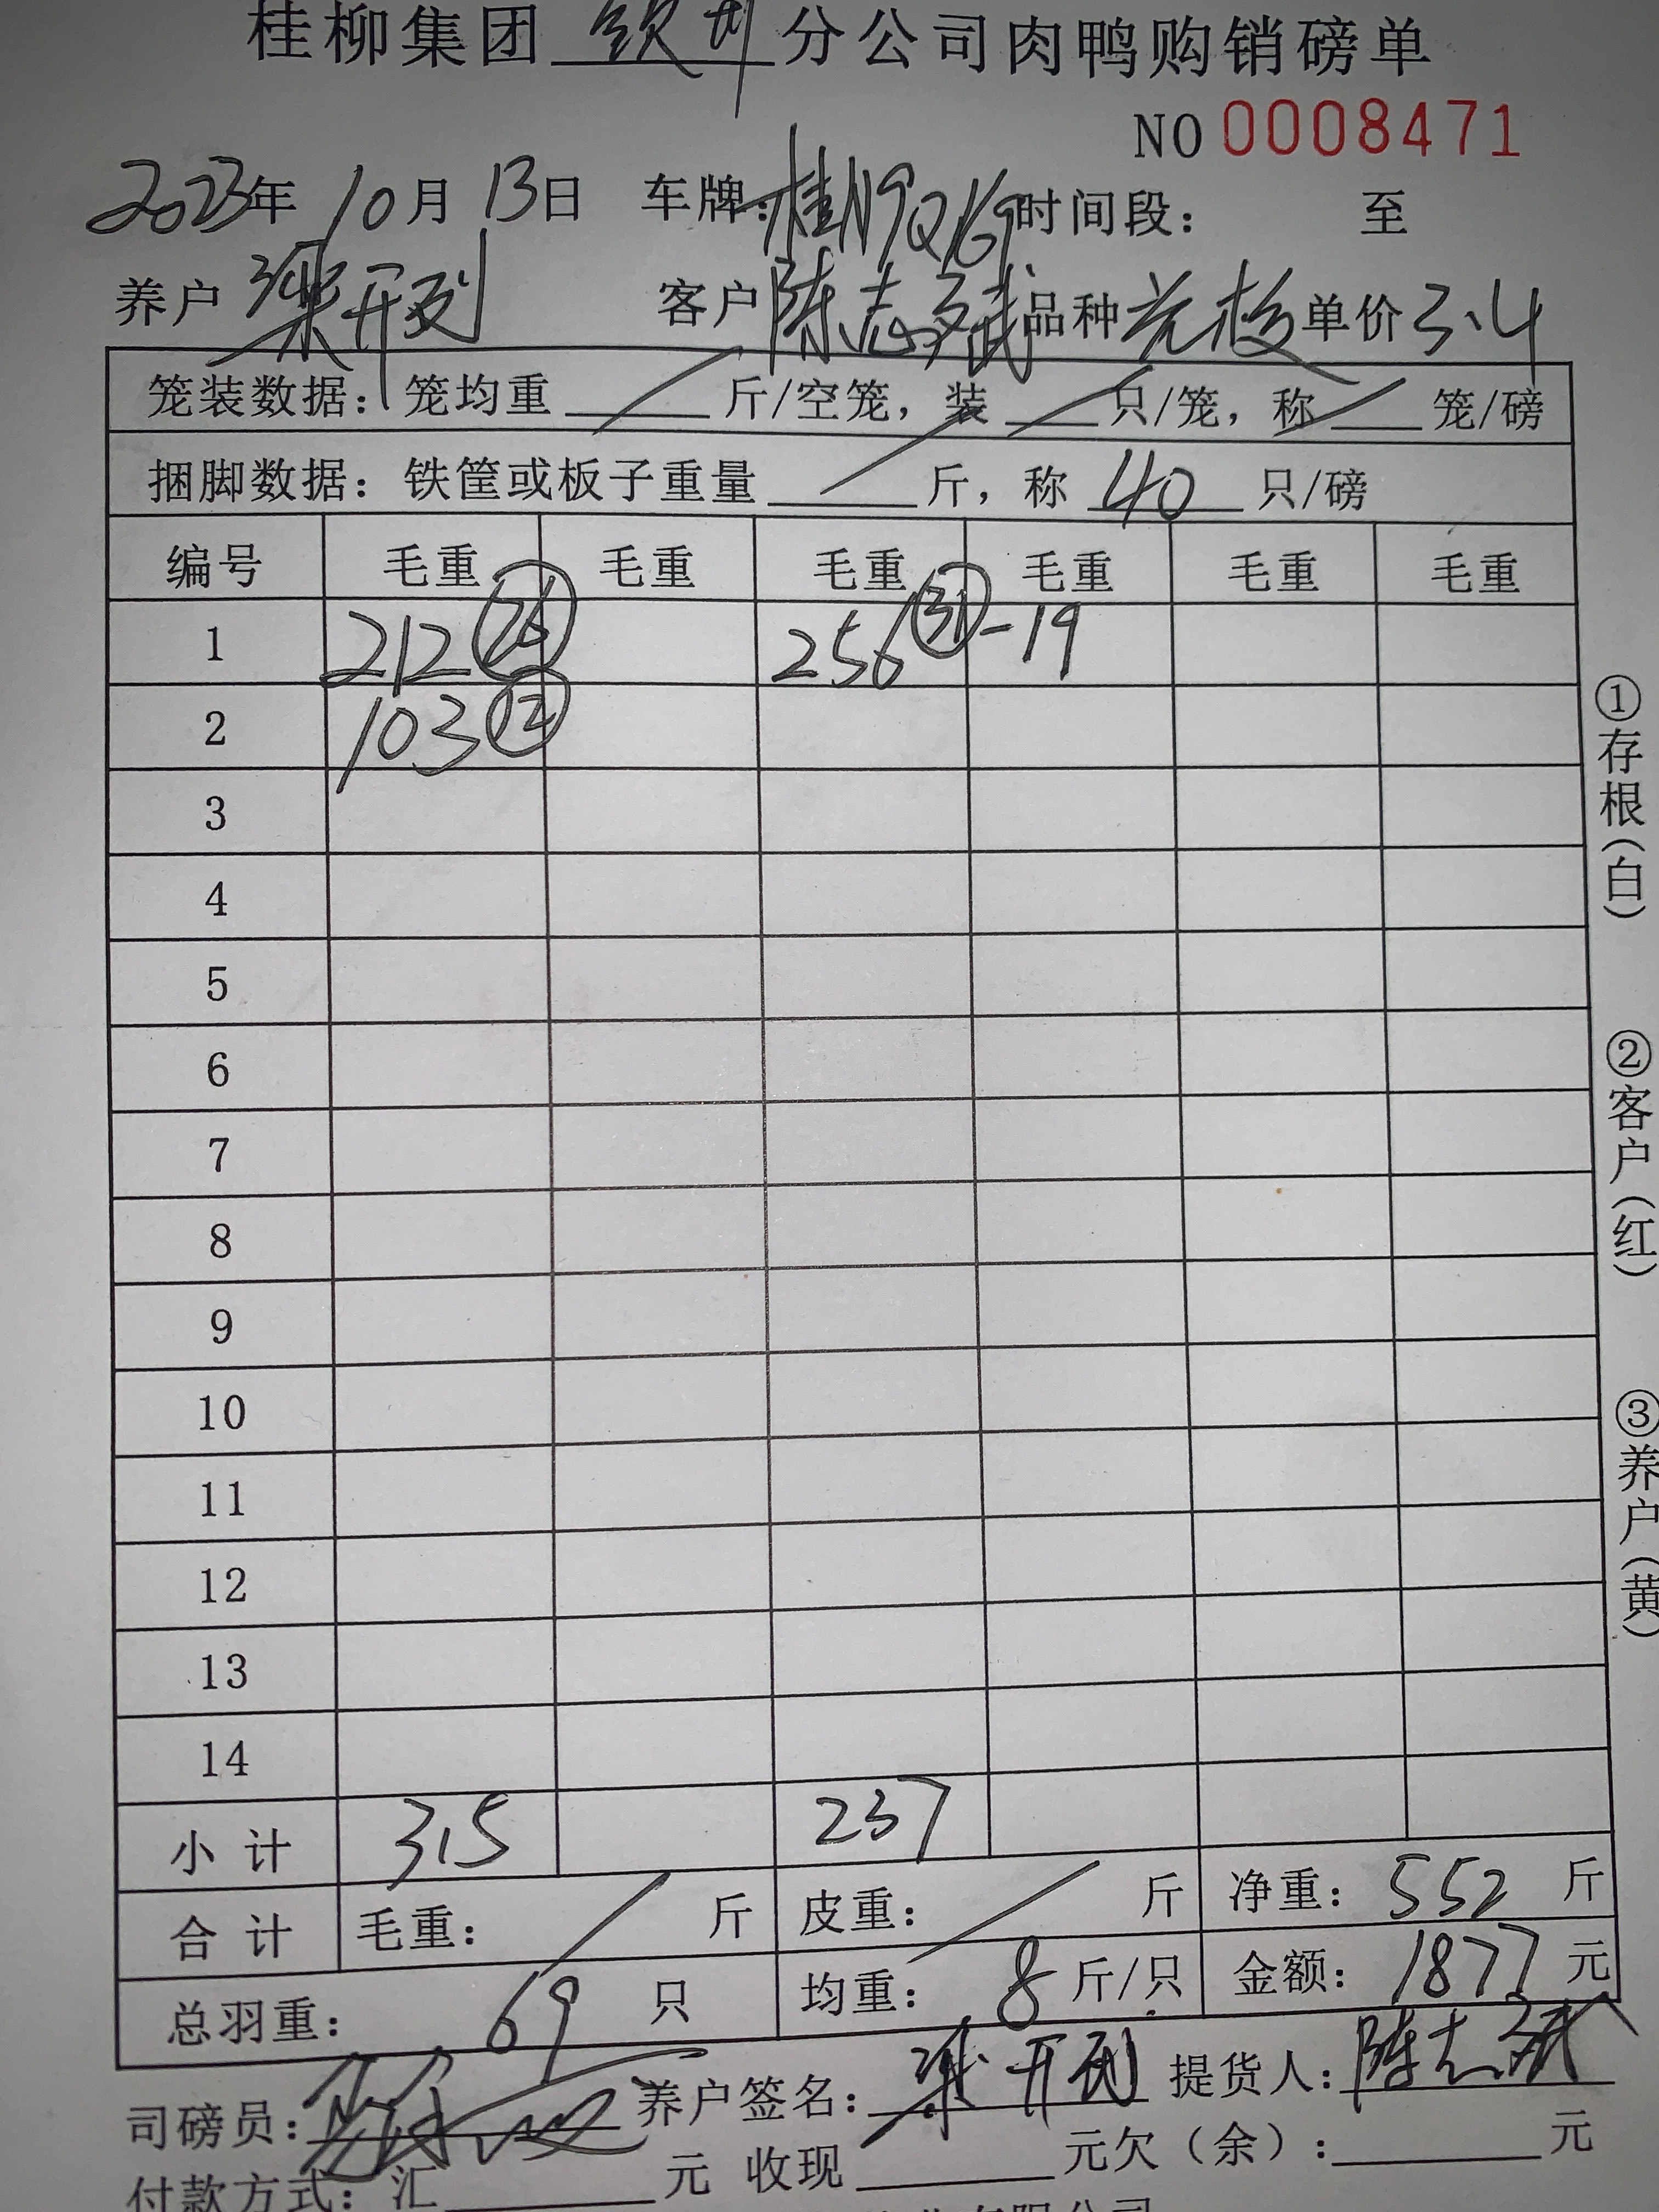 桂柳集团 钦州 分公司肉鸭购销磅单
NO 0008471
2023年 10月 13日 车牌：桂N9Q169 时间段： 至
养户 梁开列 客户 陈志斌 品种 单价 3.4
笼装数据：笼均重 / 斤/空笼，装 / 只/笼，称 / 笼/磅
捆脚数据：铁筐或板子重量 / 斤，称 40 只/磅
编号 毛重 毛重 毛重 毛重 毛重 毛重
1 212 26 256 31 -19
2 103 12
3
4
5
6
7
8
9
10
11
12
13
14
小计 315 237
合计 毛重： / 斤 皮重： / 斤 净重： 552 斤
总羽重： 69 只 均重： 8 斤/只 金额： 1877 元
司磅员： 养户签名： 梁开列 提货人： 陈志斌
付款方式：汇 元 收现 元欠（余）： 元
①存根（白）
②客户（红）
③养户（黄）